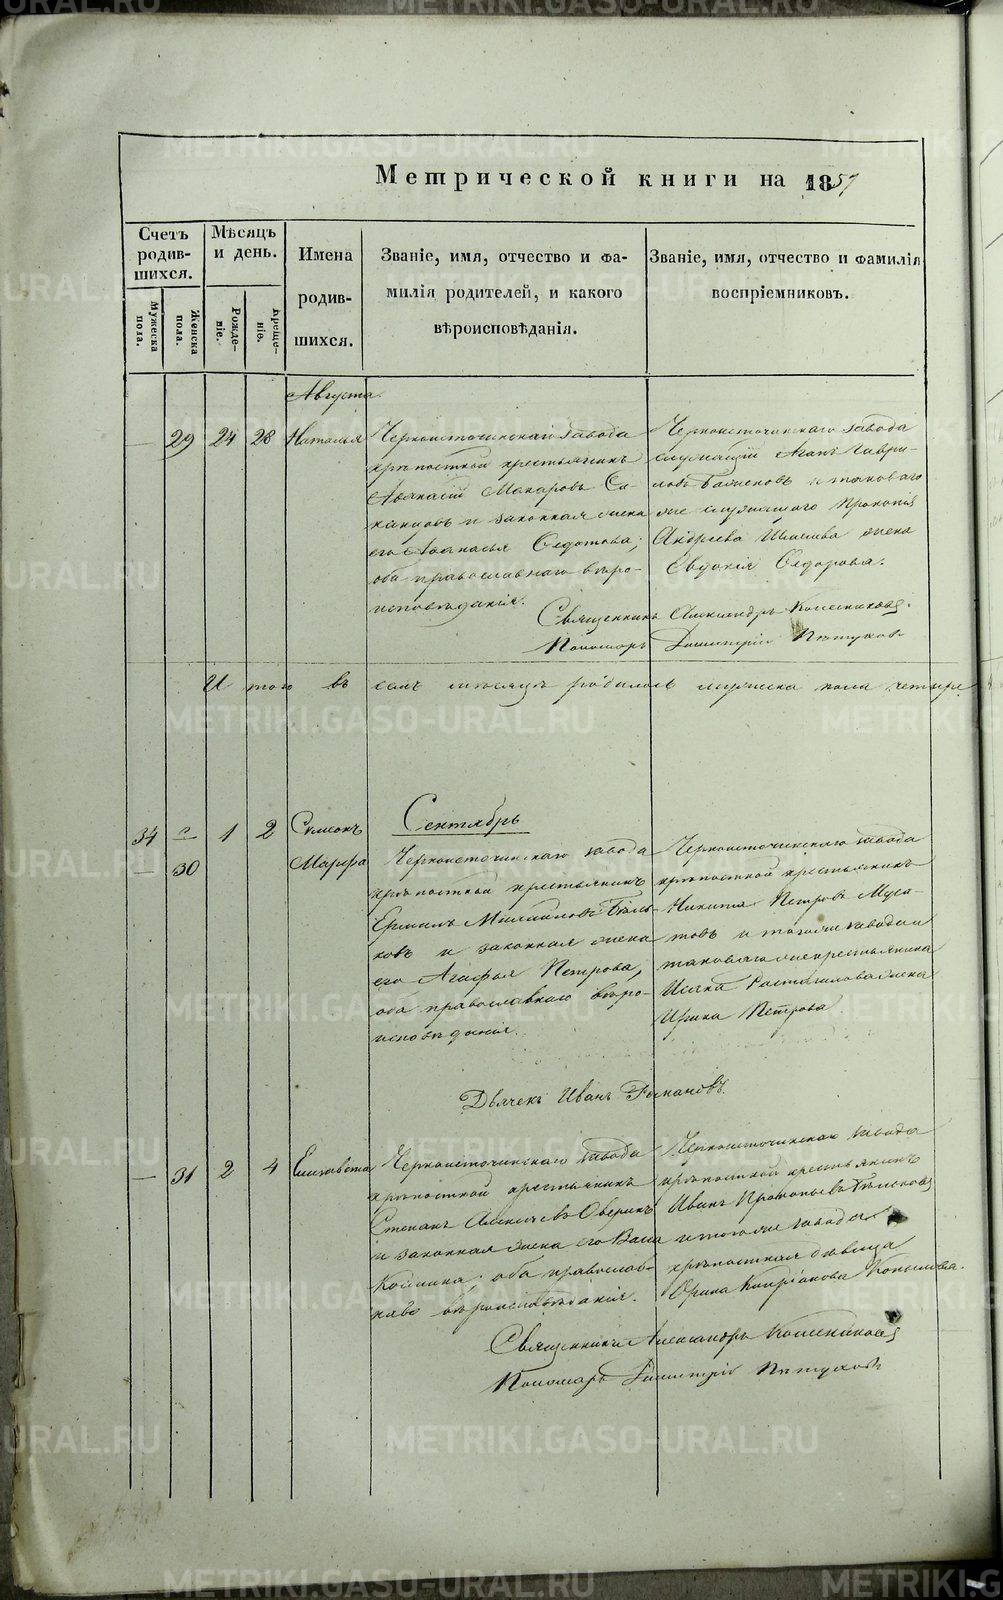 Метрической книги на 1857
Счетъ родив-шихся.
Мѣсяцъ и день.
Имена родив-шихся.
Званіе, имя, отчество и фа-
милія родителей, и какого
вѣроисповѣданія.
Званіе, имя, отчество и фамилія
воспріемниковъ.
Мужеска пола.
Женска пола.
Рожде-ніе.
Креще-ніе.
Августа
— 29 24 28 Наталья
Черноисточинскаго завода
крѣпостной крестьянинъ
Афанасій Макаровъ
и законная жена
его Афанасья Федотова;
оба православнаго вѣро-
исповѣданія.
Черноисточинскаго завода
служащій Агапъ Гаври-
ловъ и таковаго
же служащаго Прокопія
Андреева жена
Евдокія Федорова.
Священникъ Александръ Колесниковъ.
Пономарь Димитрій Пѣтуховъ
И того въ семъ мѣсяцѣ родилось мужеска пола четыре
Сентябрь
34 — 1 2 Симеонъ
— 30 Марфа
Черноисточинскаго завода
крѣпостной крестьянинъ
Ермилъ Михайловъ Бѣль-
ковъ и законная жена
его Агафья Петрова,
оба православнаго вѣро-
исповѣданія.
Черноисточинскаго завода
крѣпостной крестьянинъ
Никита Петровъ Муса-
товъ и того же завода
таковаго же крестьянина
Исака жена
Ирина Петрова
Дьячекъ Иванъ Романовъ.
— 31 2 4 Елизавета
Черноисточинскаго завода
крѣпостной крестьянинъ
Степанъ Алексѣевъ Оверинъ
и законная жена его Васса
Козмина; оба православ-
наго вѣроисповѣданія.
Черноисточинскаго завода
крѣпостной крестьянинъ
Иванъ Прокопьевъ
и того же завода
крѣпостная дѣвица
Орина Кипріанова Копылова.
Священникъ Александръ Колесниковъ
Пономарь Димитрій Пѣтуховъ
METRIKI.GASO-URAL.RU